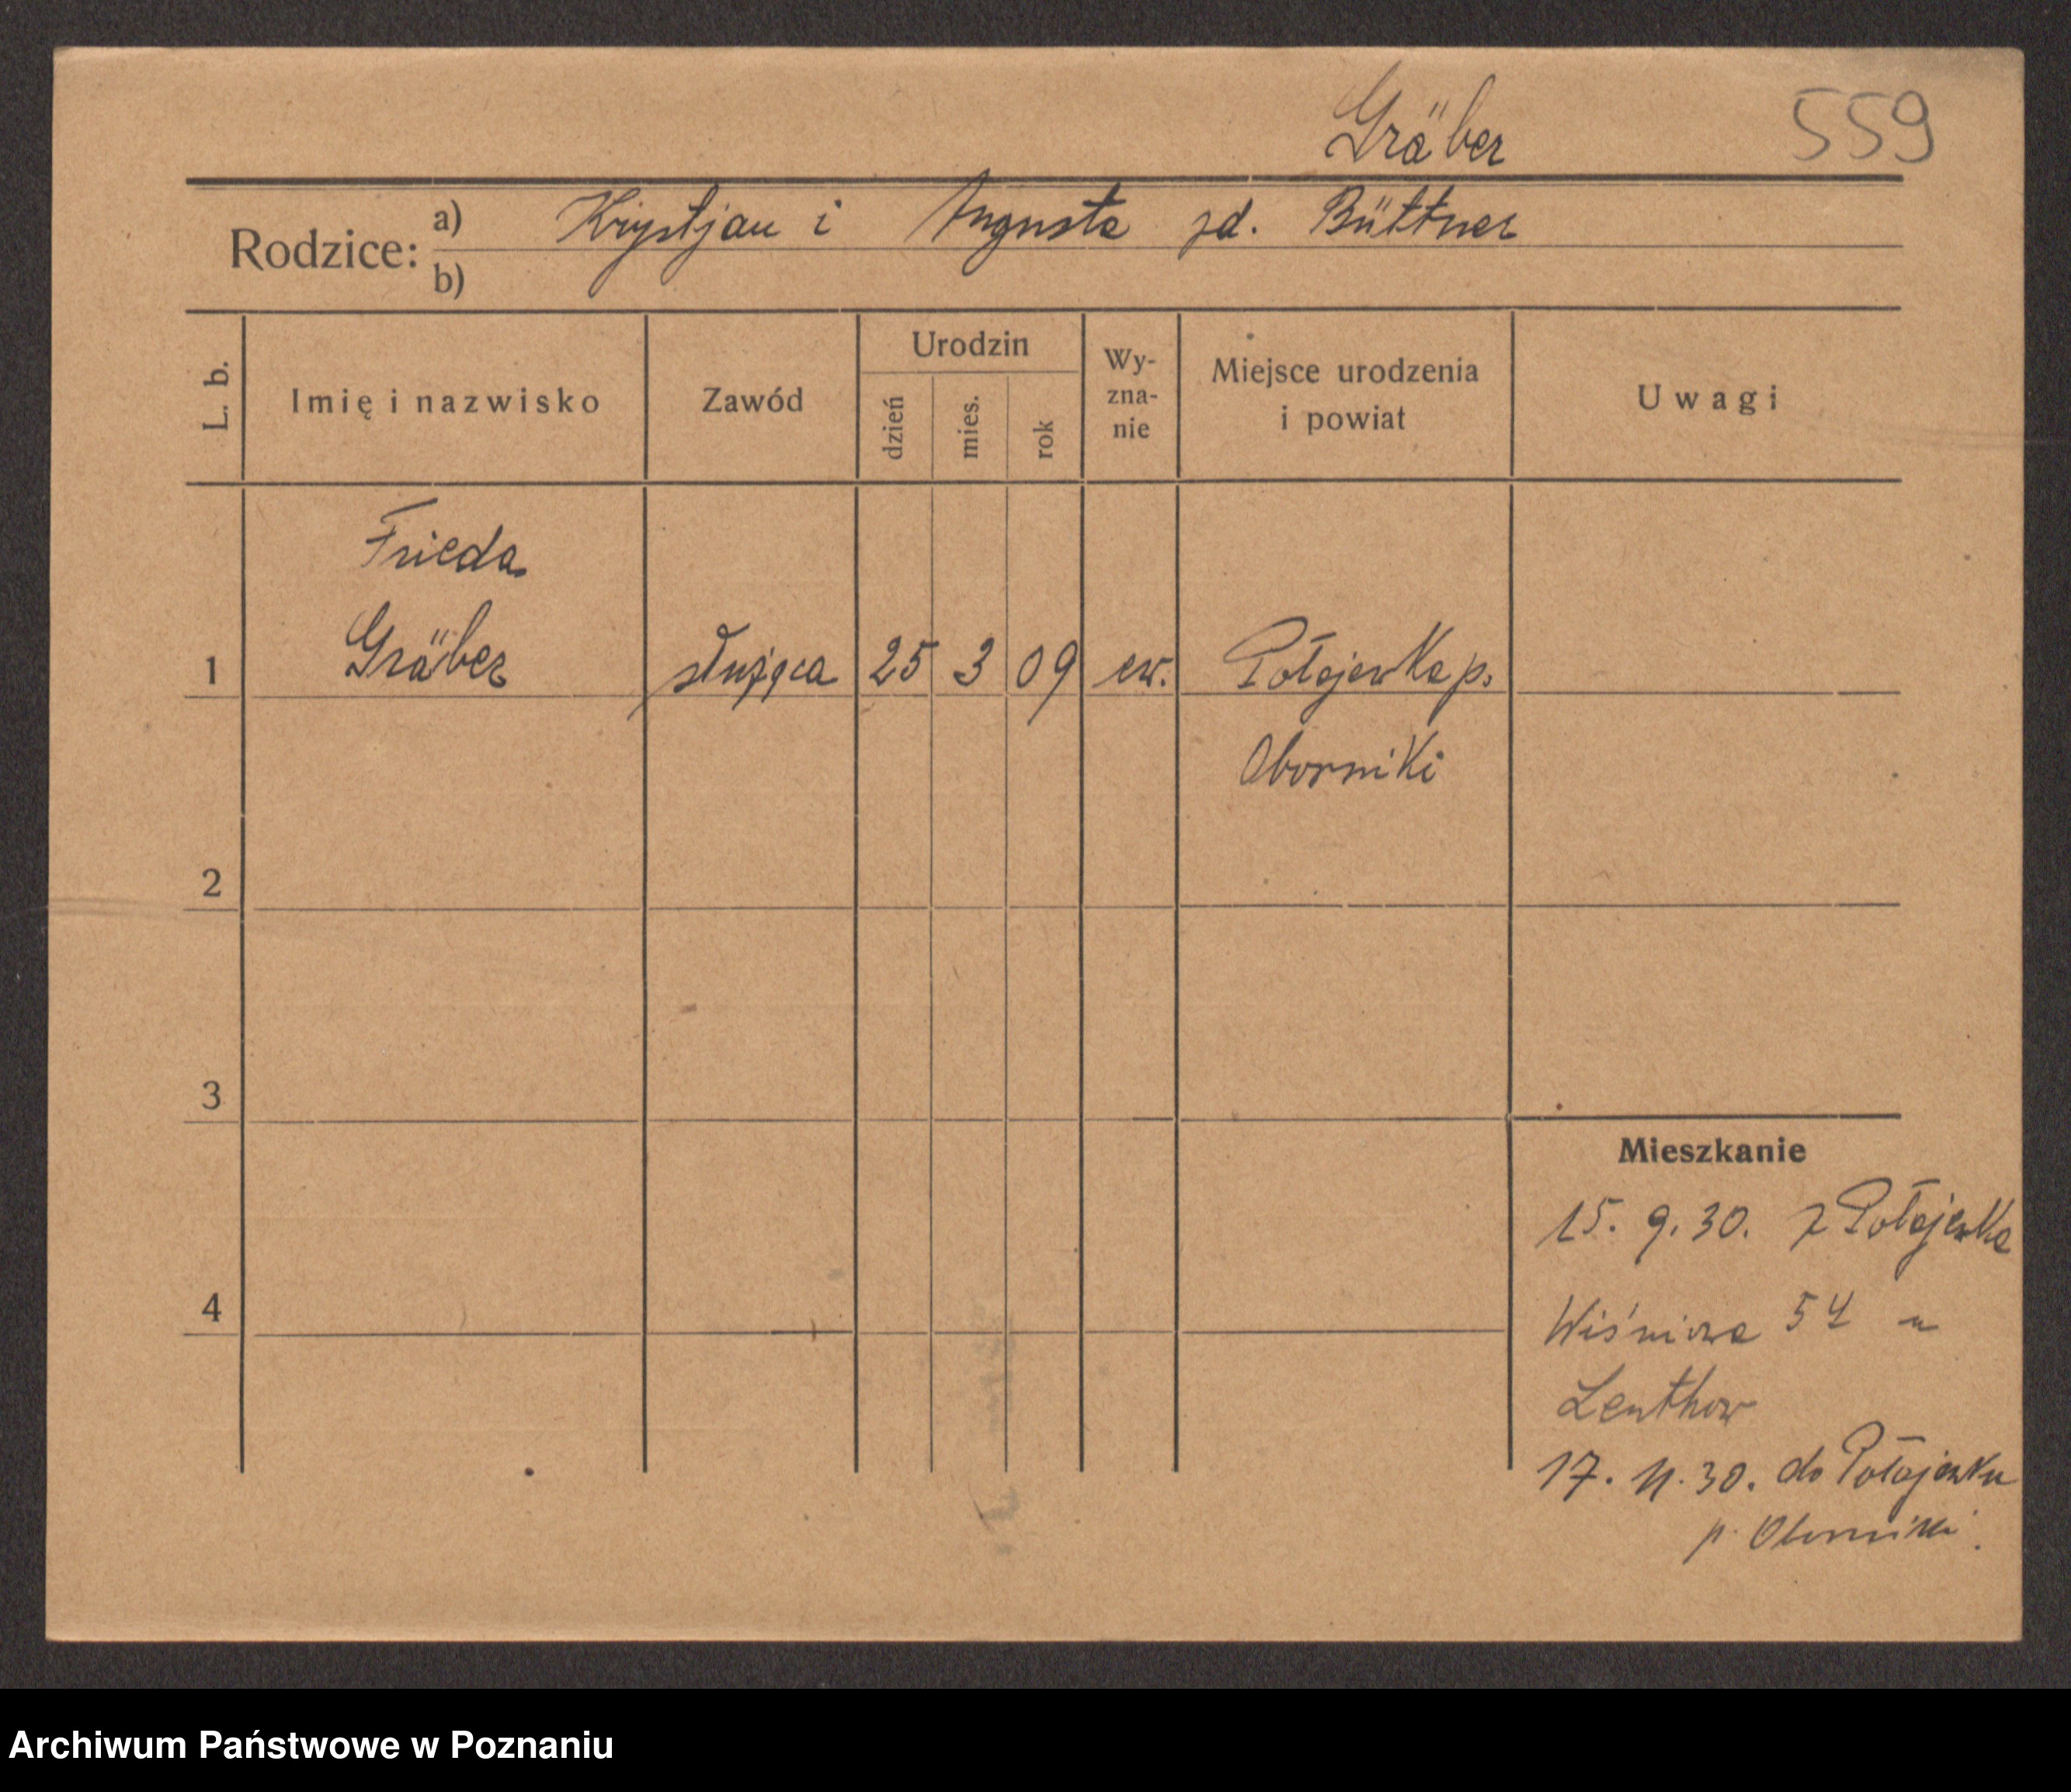 Gräber
559
Rodzice: a) Krystjan i Augusta zd. Büttner
b)
L. b.
Imię i nazwisko
Zawód
Urodzin
dzień
mies.
rok
Wy-
zna-
nie
Miejsce urodzenia
i powiat
Uwagi
Frieda
1 Gräber służąca 25 3 09 ew. Połajewko p.
Oborniki
2
3
4
Mieszkanie
15. 9. 30. z Połajewka
Wiśniowa 54 u
Lenthow
17. 11. 30. do Połajewku
p. Oborniki.
Archiwum Państwowe w Poznaniu